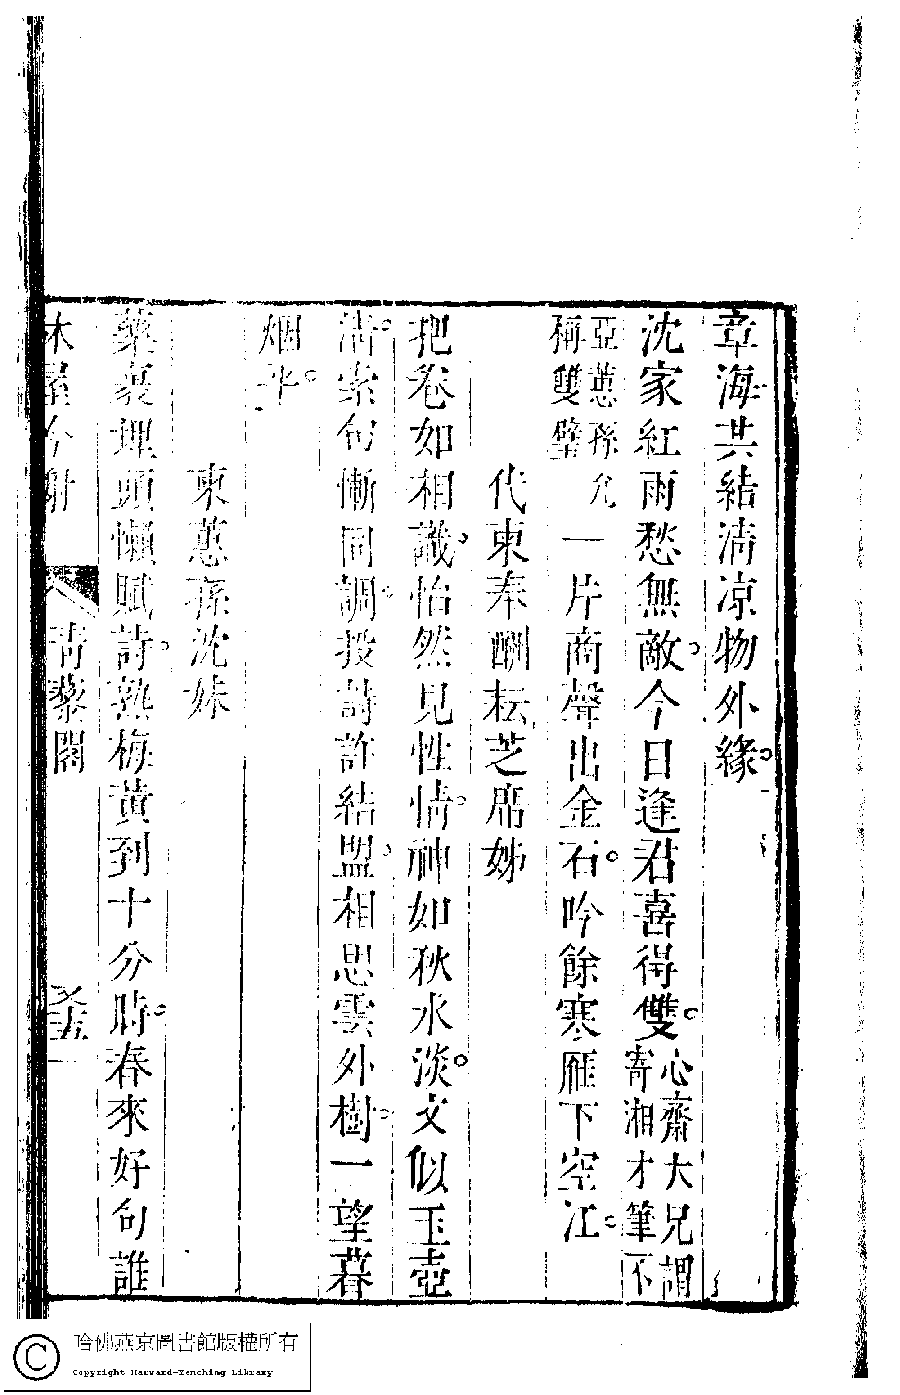 章海共結清凉物外緣
沈家紅雨愁無敵今日逢君喜得雙心齋大兄謂寄湘才筆不
亞蕙孫允稱雙璧一片商聲出金石吟餘寒雁下空江
代柬奉酬耘芝席姊
把卷如相識怡然見性情神如秋水淡文似玉壺
清索句慚同調投詩許結盟相思雲外樹一望暮
烟平
柬蕙孫沈妹
藥裹埋頭懶賦詩熟梅黃到十分時春來好句誰
林屋吟榭
清藜閣
五
哈佛燕京圖書館版權所有
Copyright Harvard-Yenching Library